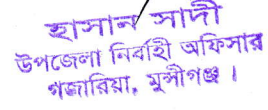 হাসান সাদী
উপজেলা নির্বাহী অফিসার
গজারিয়া, মুন্সীগঞ্জ।